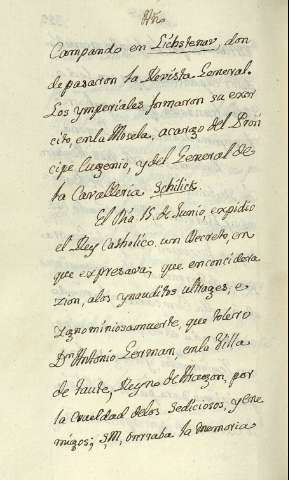 Año
Campando en Lichstenav, don
de pasaron la Revista General.
Los ymperiales formaron su exer
cito, en la Mosela, acargo del Prin
cipe Eugenio, y del General de
la Cavalleria Schilick.
El Dia 15 de Junio, expidio
el Rey Catholico un Decreto, en
que expresava, que en concidera
zion, alos ynauditos ultrages, e
ygnominiosa muerte, que tolero
Dn Antonio Lerman, en la Villa
de Tauste, Reyno de Aragon, por
la crueldad delos Sediciosos, y Ene
migos; S,M, onrraba la memoria